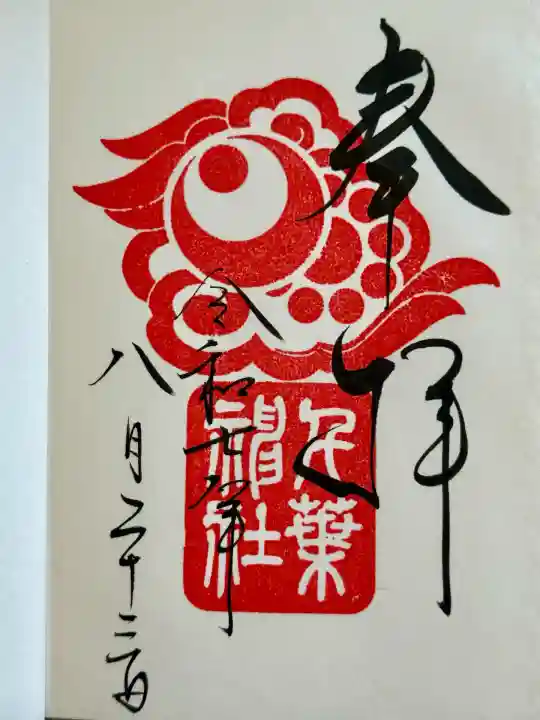 奉拝
令和七年
八月二十三日
千葉
神社